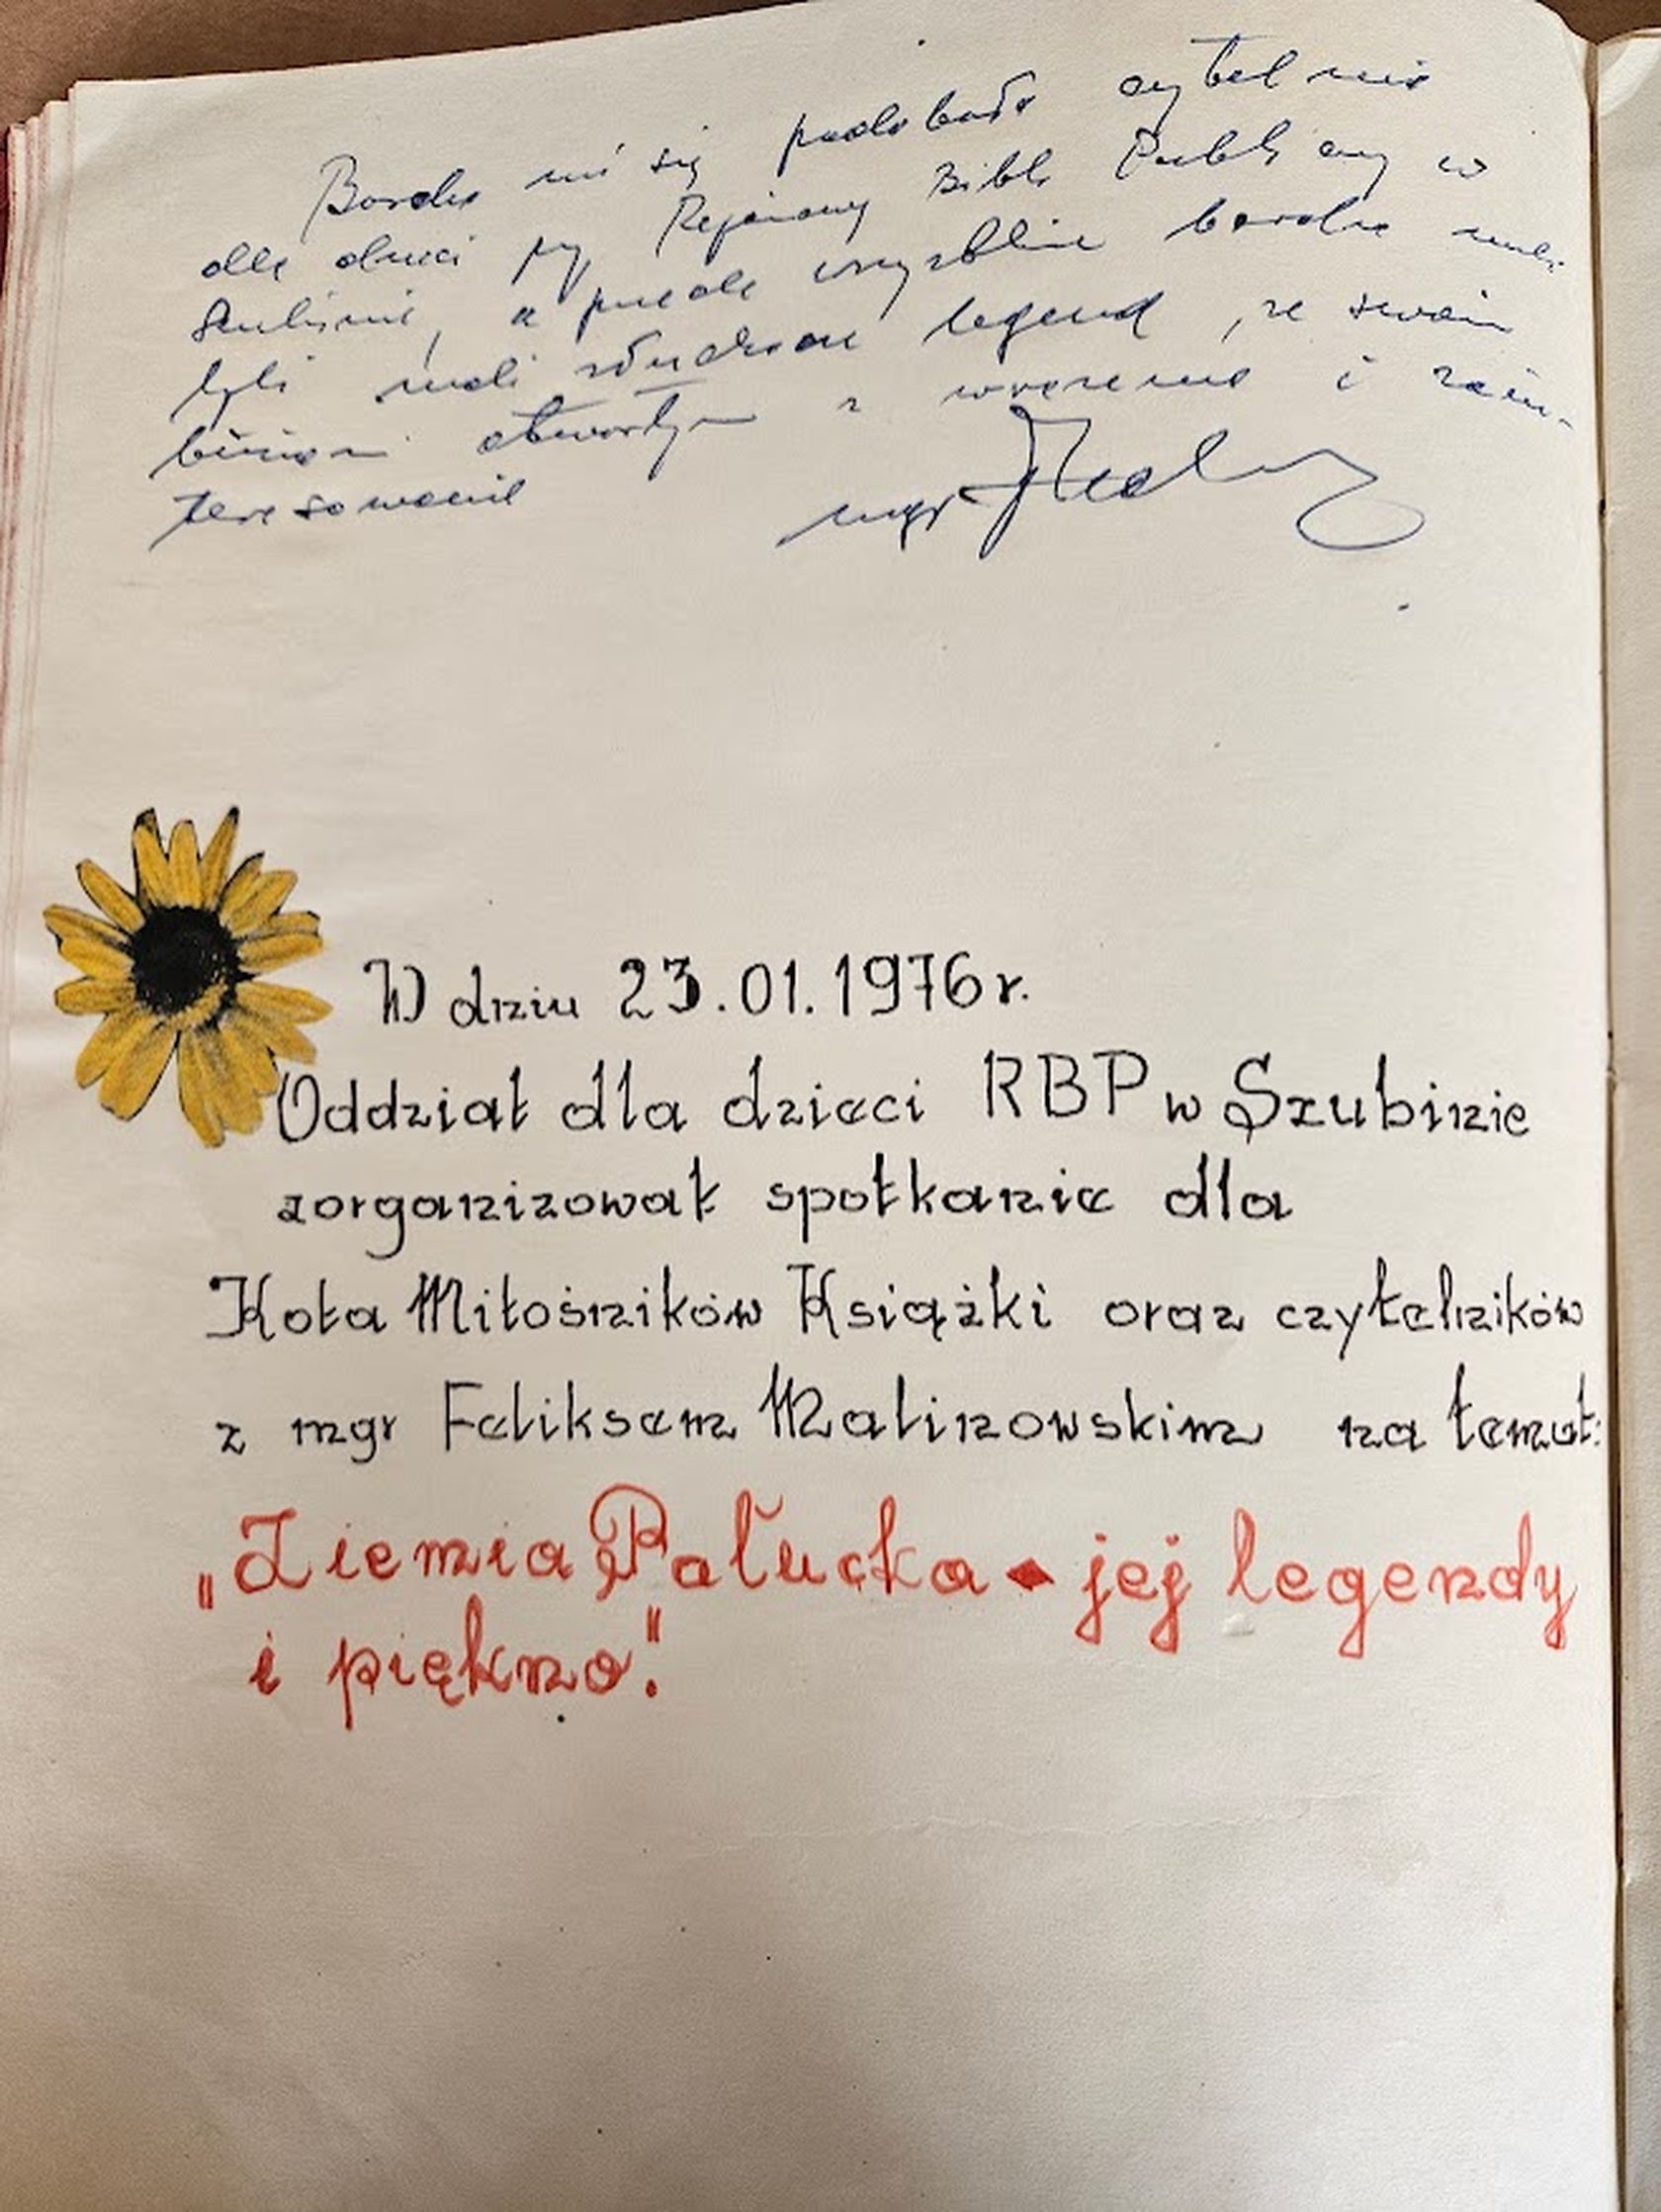 Bardzo mi się podobała czytelnia
dla dzieci przy Rejonowej Bibl. Publicznej w
Szubinie, a przede wszystkim bardzo mili
byli mali słuchacze legend, ze swoim
otwartym z wrażenia i zain-
teresowania
mgr
W dniu 23.01.1976 r.
Oddział dla dzieci RBP w Szubinie
zorganizował spotkanie dla
Koła Miłośników Książki oraz czytelników
z mgr Feliksem Malinowskim na temat:
„Ziemia Pałucka - jej legendy
i piękno."